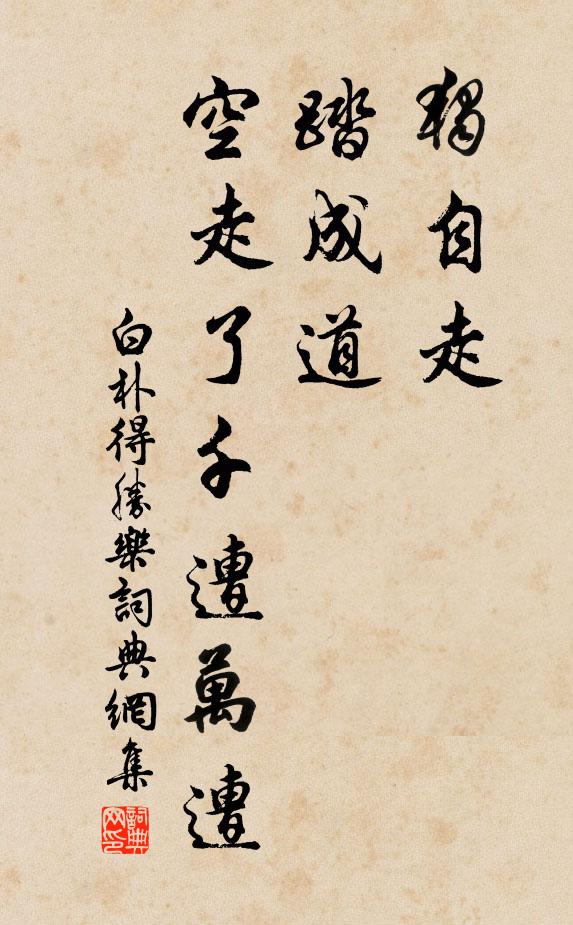 獨自走
踏成道
空走了千遭萬遭
白朴得勝樂詞典網集
詞典网印